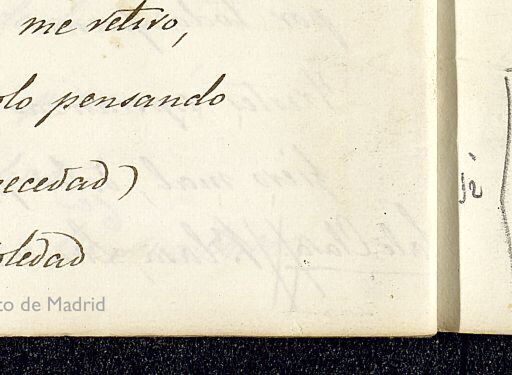 me retiro,
olo pensando
necedad)
oledad
to de Madrid
sí